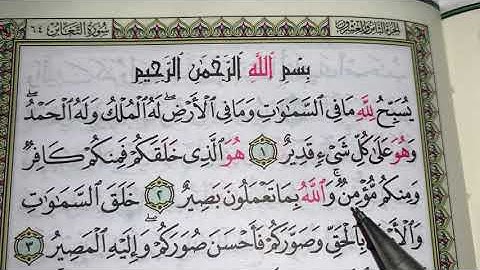 الجزء الثامن والعشرون
سورة التغابن ٦٤
بِسْمِ ٱللَّهِ ٱلرَّحْمَٰنِ ٱلرَّحِيمِ
يُسَبِّحُ لِلَّهِ مَا فِي السَّمَاوَاتِ وَمَا فِي الْأَرْضِ ۖ لَهُ الْمُلْكُ وَلَهُ الْحَمْدُ ۖ
وَهُوَ عَلَىٰ كُلِّ شَيْءٍ قَدِيرٌ ١ هُوَ الَّذِي خَلَقَكُمْ فَمِنكُمْ كَافِرٌ
وَمِنكُم مُّؤْمِنٌ ۚ وَاللَّهُ بِمَا تَعْمَلُونَ بَصِيرٌ ٢ خَلَقَ السَّمَاوَاتِ
وَالْأَرْضَ بِالْحَقِّ وَصَوَّرَكُمْ فَأَحْسَنَ صُوَرَكُمْ ۖ وَإِلَيْهِ الْمَصِيرُ ٣